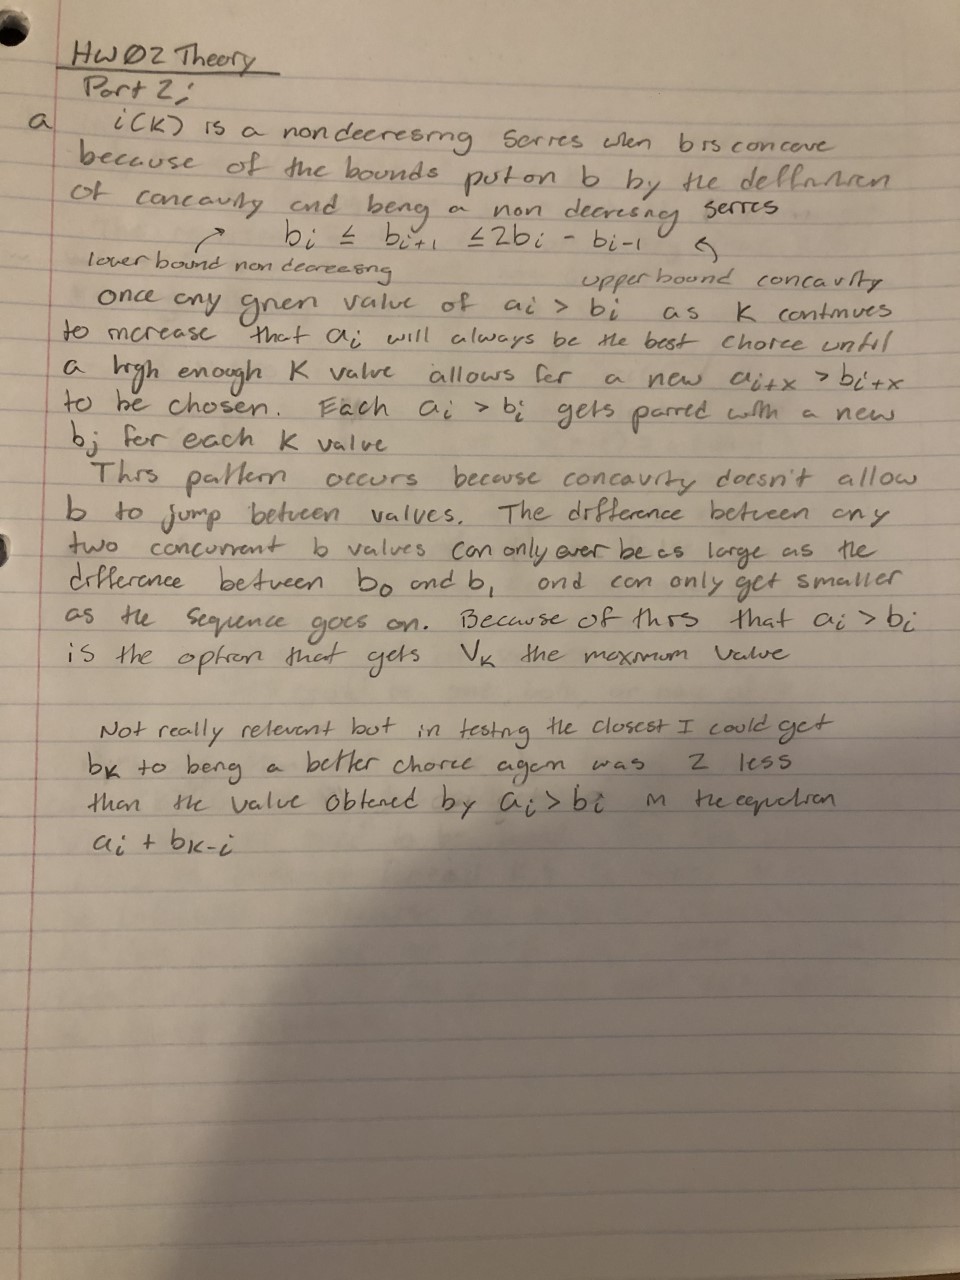 HW02 Theory
Part 2;
a i(K) is a nondecreasing series when b is concave
because of the bounds put on b by the deffinition
of concavity and being a non decreasing series
bi ≤ bi+1 ≤ 2bi - bi-1
lower bound non decreasing
upper bound concavity
once any given value of ai > bi as K continues
to increase that ai will always be the best choice until
a high enough K value allows for a new ai+x > bi+x
to be chosen. Each ai > bi gets paired with a new
bj for each K value
This pattern occurs because concavity doesn't allow
b to jump between values. The difference between any
two concurrent b values can only ever be as large as the
difference between b0 and b1 and can only get smaller
as the sequence goes on. Because of this that ai > bi
is the option that gets VK the maximum value
Not really relevent but in testing the closest I could get
bK to being a better choice again was 2 less
than the value obtened by ai > bi in the equation
ai + bK-i